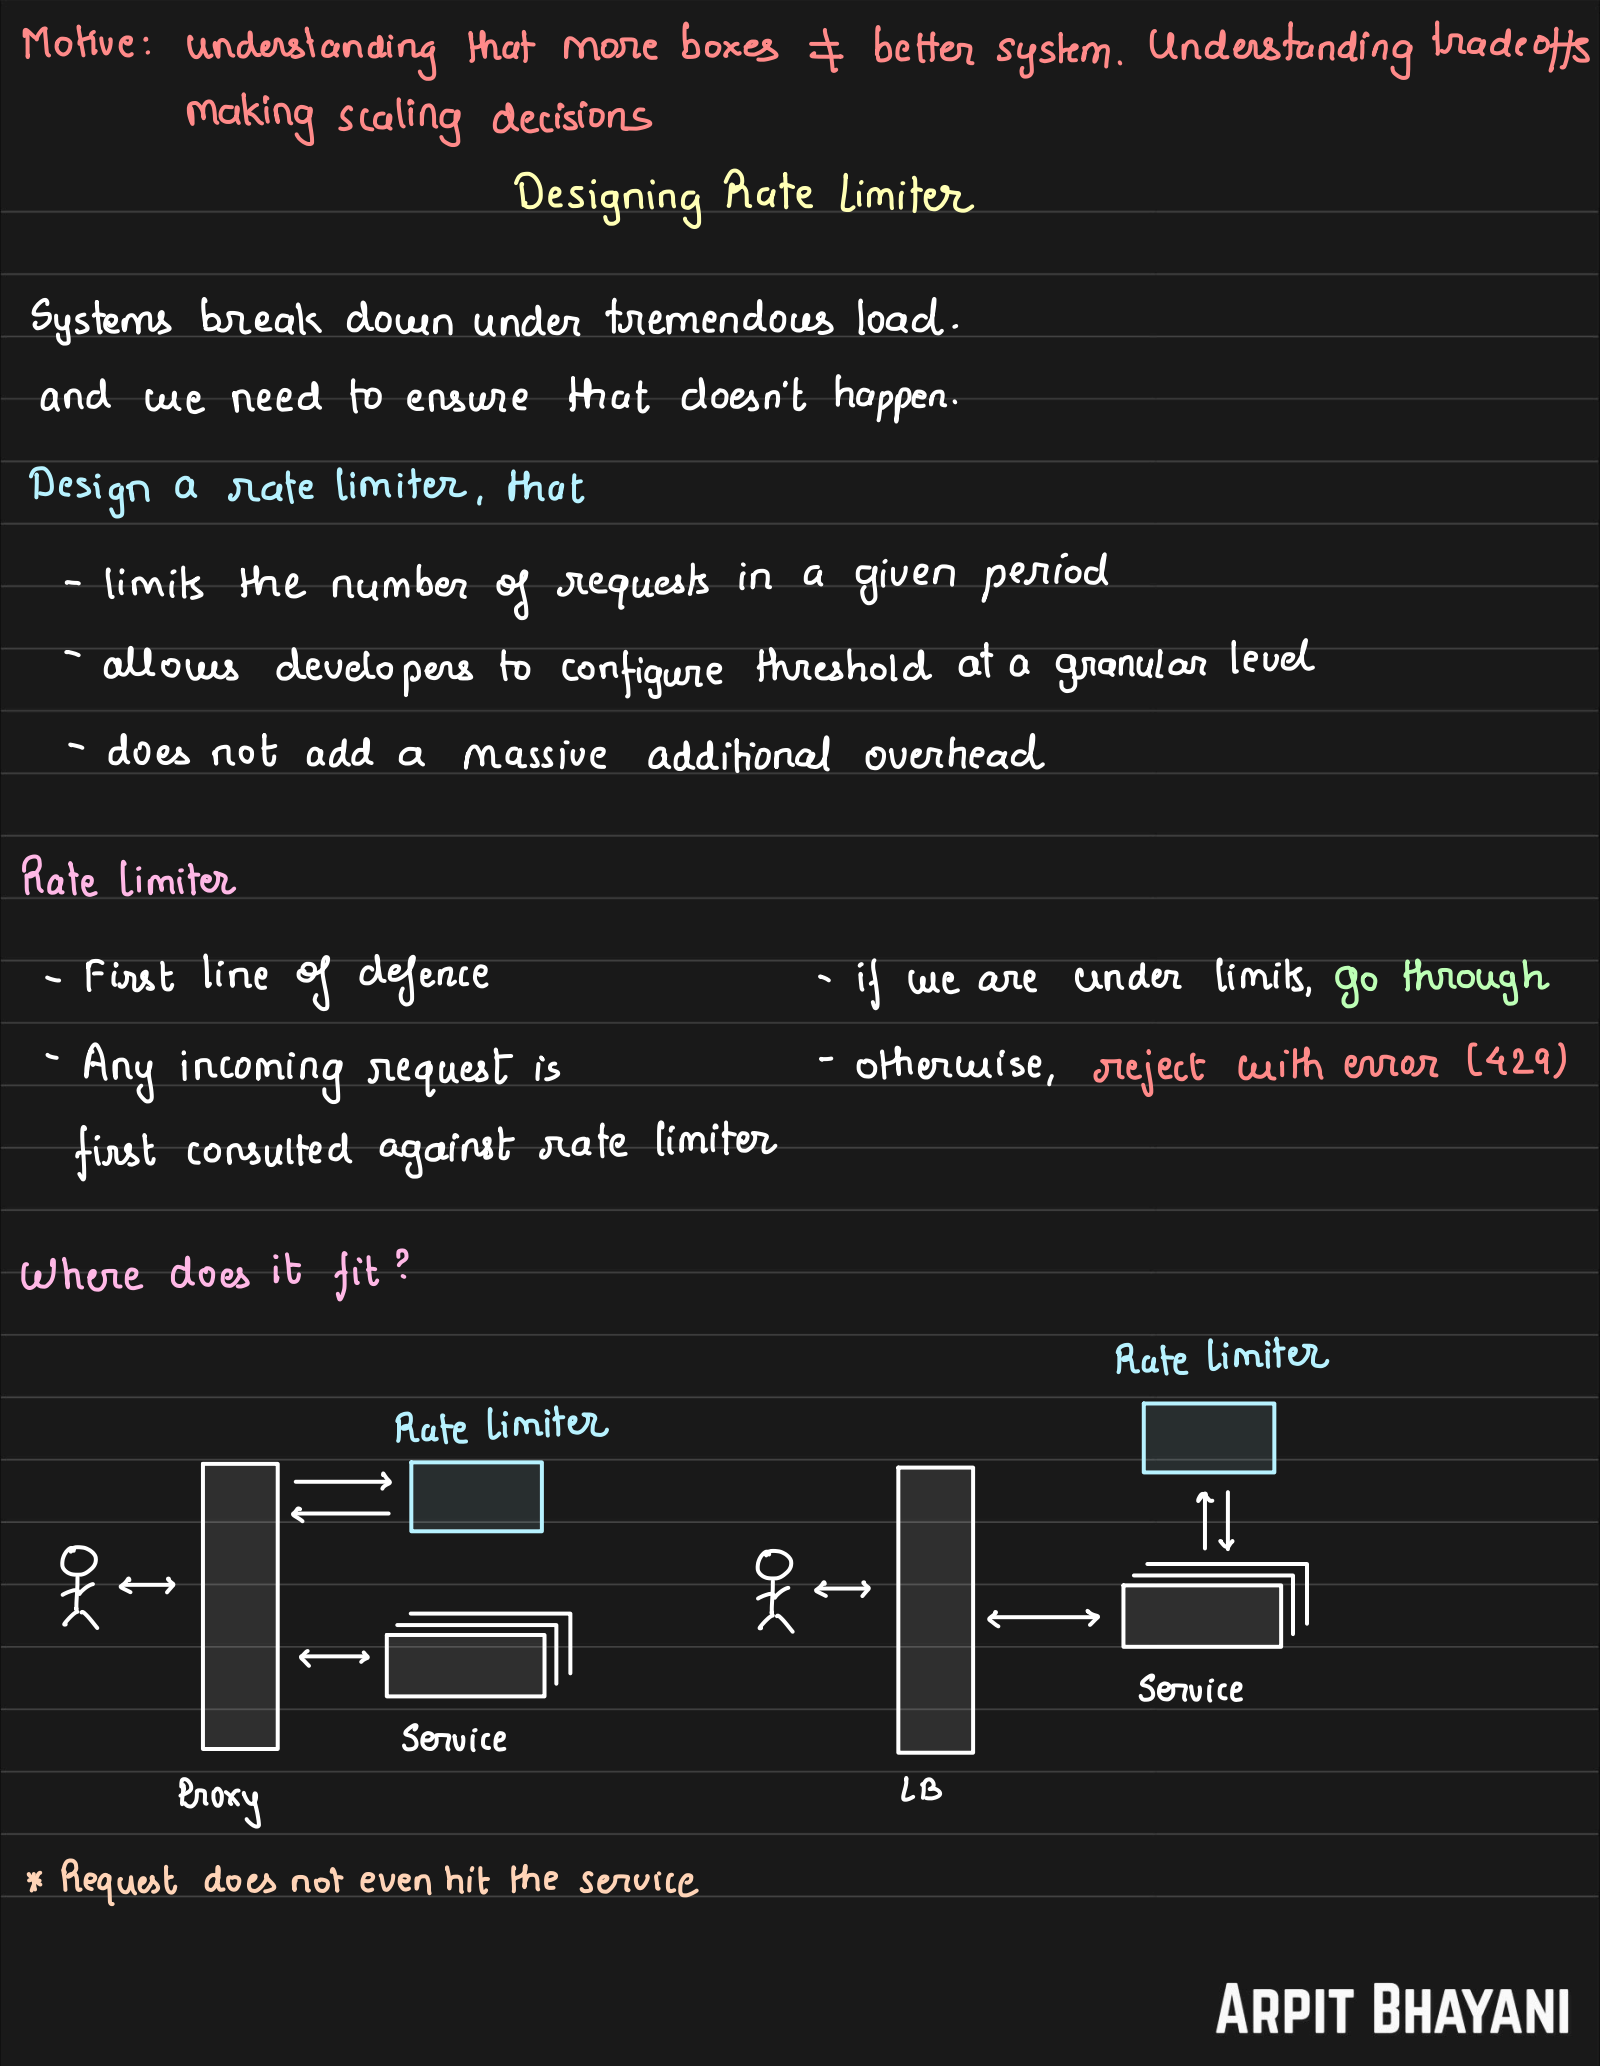 Motive: understanding that more boxes ≠ better system. Understanding tradeoffs
making scaling decisions
Designing Rate Limiter
Systems break down under tremendous load.
and we need to ensure that doesn't happen.
Design a rate limiter, that
- limits the number of requests in a given period
- allows developers to configure threshold at a granular level
- does not add a massive additional overhead
Rate limiter
- First line of defence
- Any incoming request is
first consulted against rate limiter
- if we are under limits, go through
- otherwise, reject with error (429)
Where does it fit?
Rate limiter
Service
Proxy
Rate limiter
Service
LB
* Request does not even hit the service
ARPIT BHAYANI